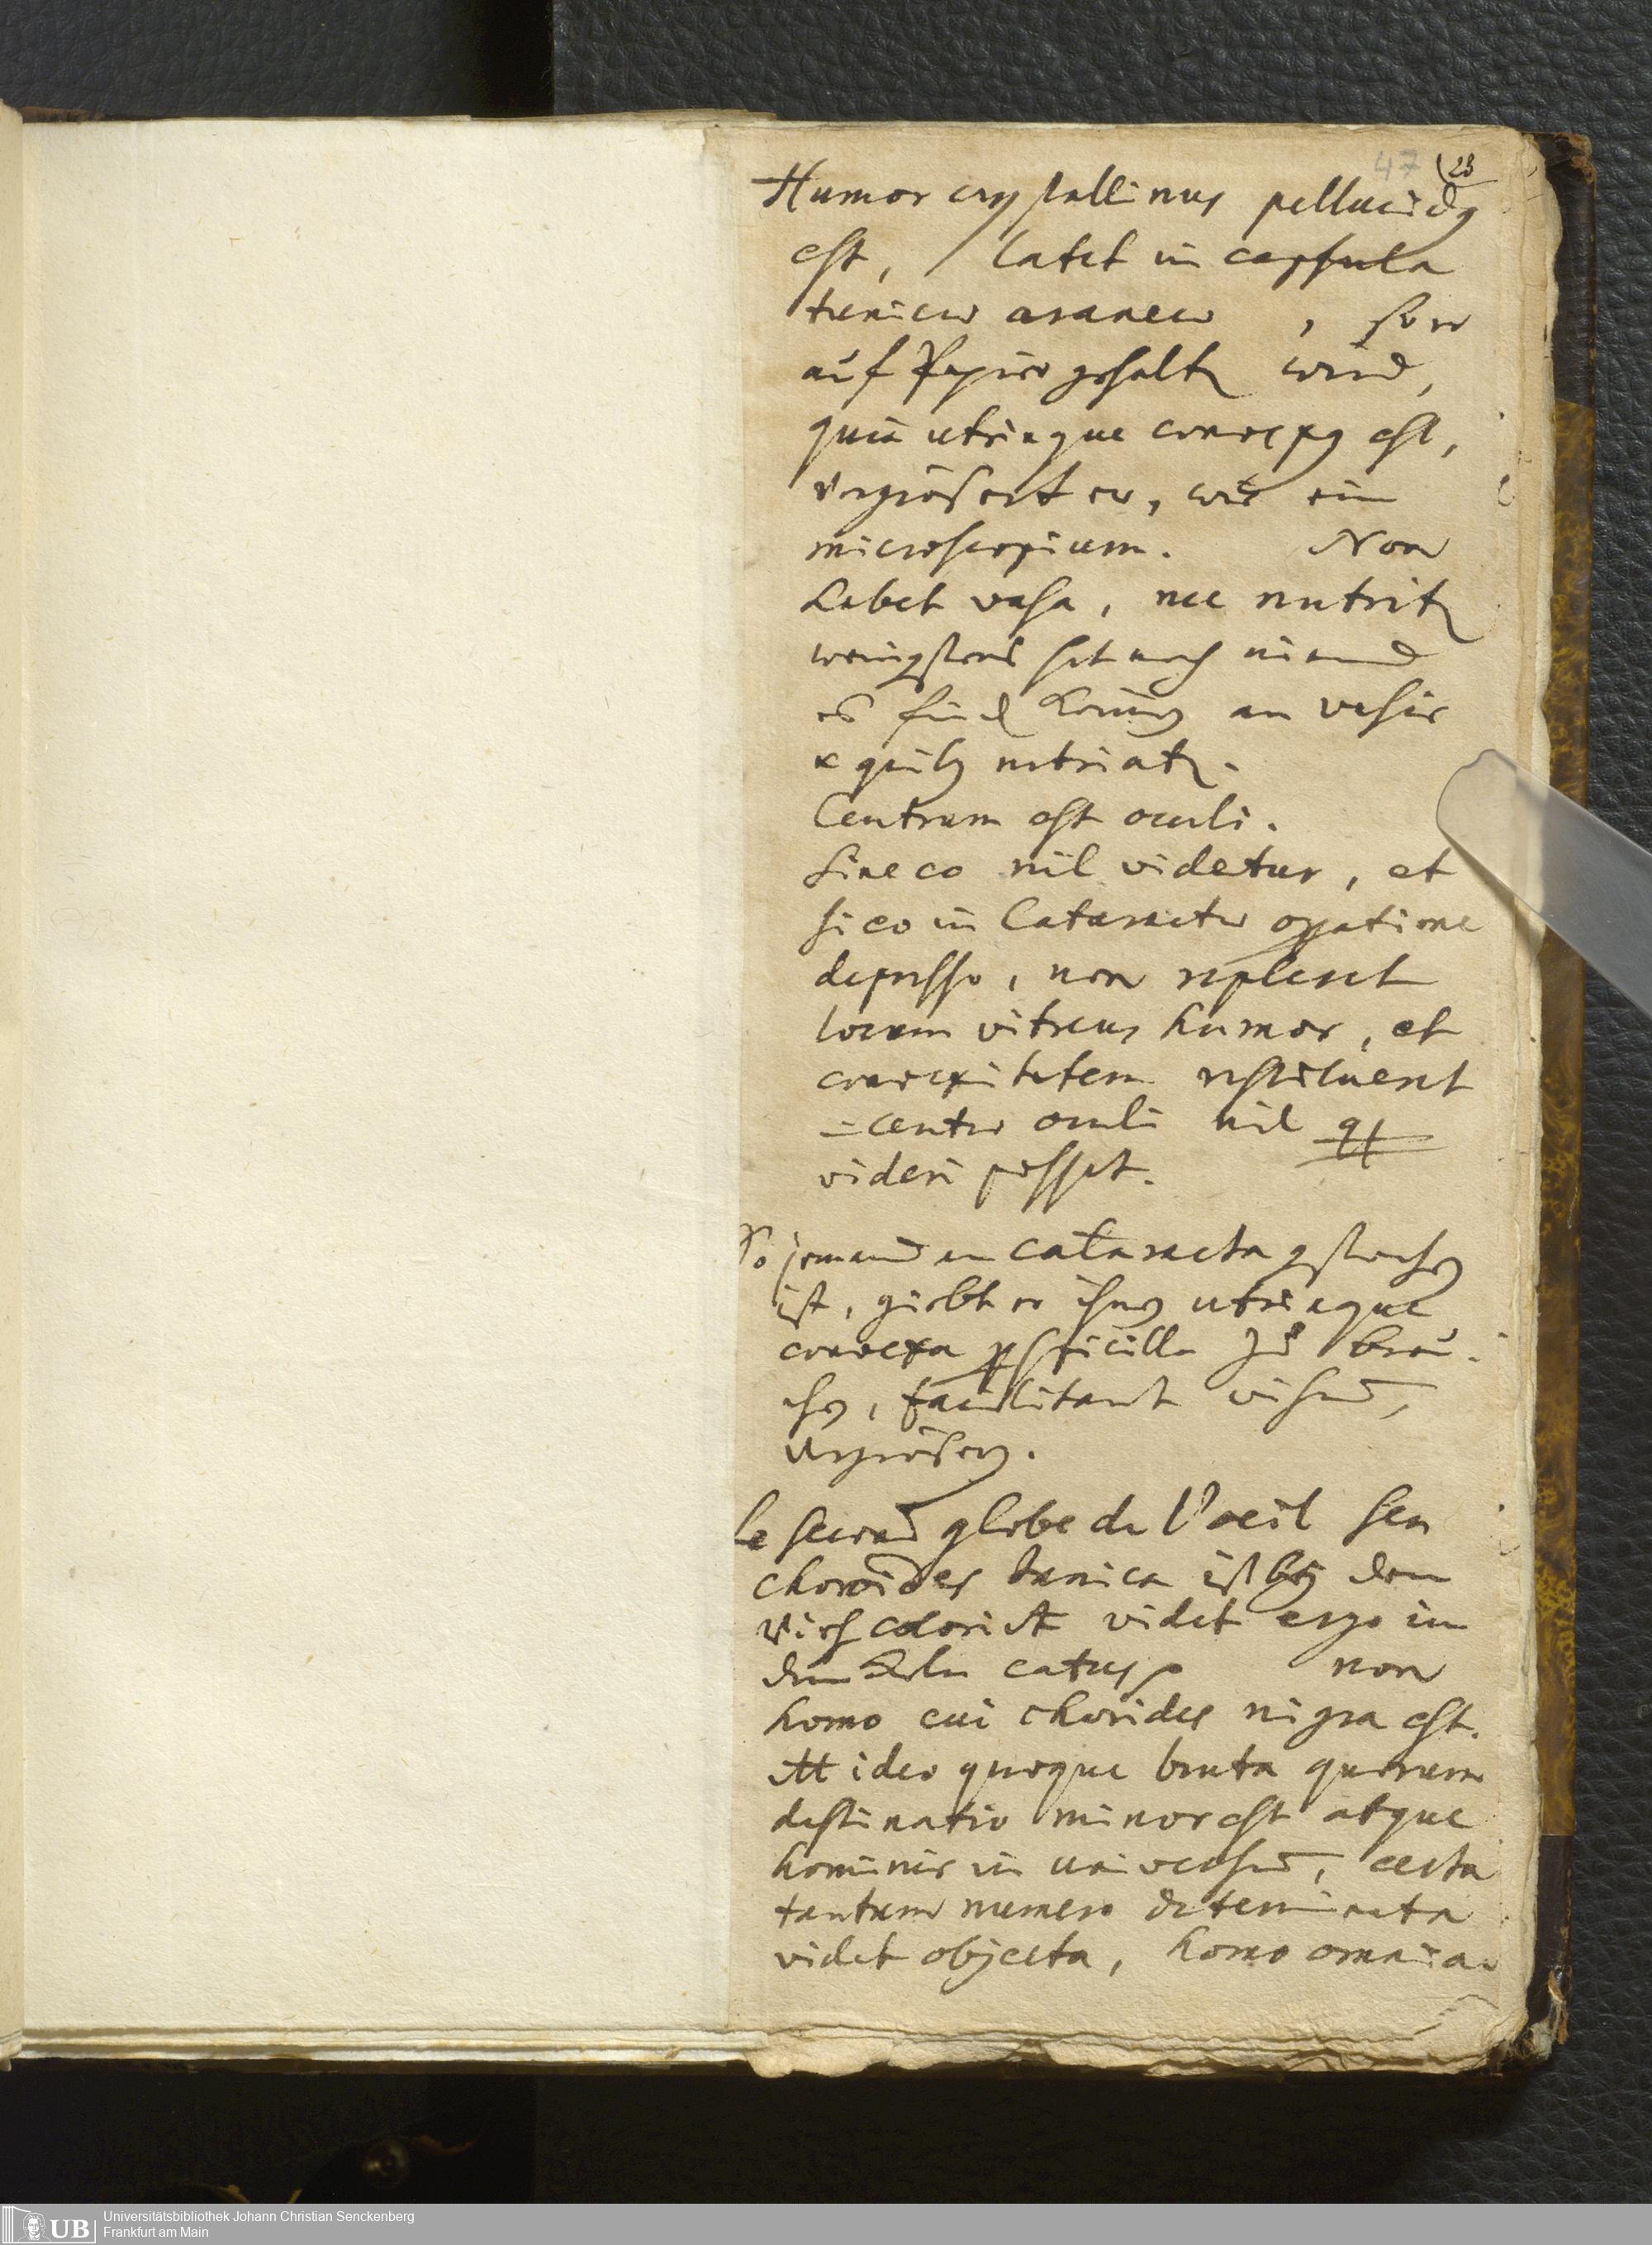 47 (23
Humor crystallinus pellucidq
est, latet in capsula
tunicae araneae, so er
auf Papier gehalt wird,
quia utrinque convexq est,
vergrösert er, wie ein
microscopium. Non
habet vasa, nec nutrit
wenigstens hat noch niemand
es find können an vasis
ex quibq nutriat.
Centrum est oculi.
Sine eo nil videtur, et
si eo in Cataractae opatione
depresso, non repleret
locum vitreus humor, et
convexitatem restitueret
centro oculi nil
videri posset.
So jemand an cataracta gstochen
ist, giebt er ihnen utrinque
convexa pspicilla zu brau-
chen, facilitant visum,
vergrösern.
Le second globe de l'oeil seu
choroides tunica ist bey dem
Vieh colorirt videt ergo im
dunkeln catus non
homo cui choroides nigra est.
At ideo quoque bruta quorum
destinatio minor est atque
hominis in universum, certa
tantum numero determinata
videt objecta, homo omnia
Universitätsbibliothek Johann Christian Senckenberg
UB Frankfurt am Main